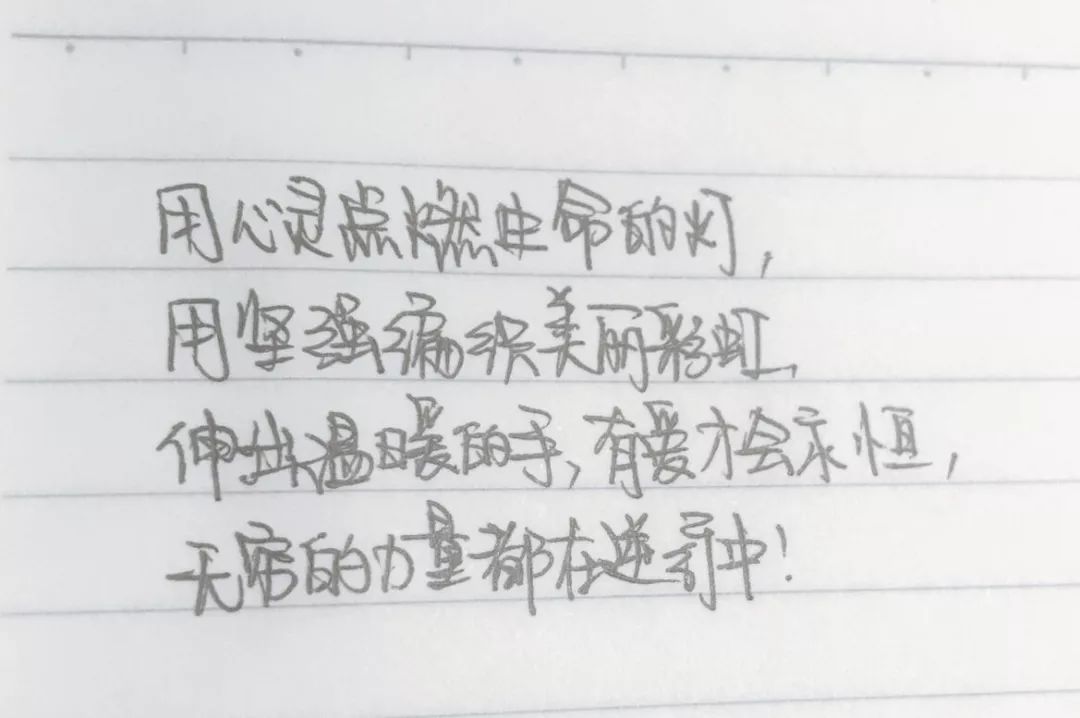 用心灵点燃生命的灯,
用坚强编织美丽彩虹,
伸出温暖的手,有爱才会永恒,
无穷的力量都在逆 中!